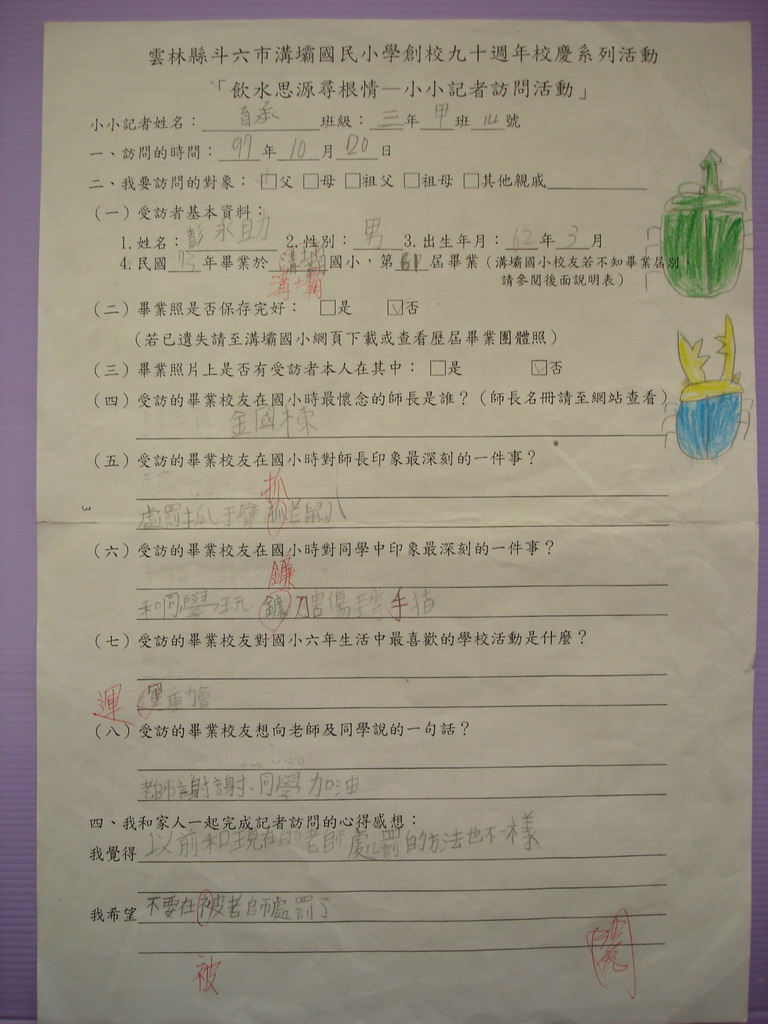 雲林縣斗六市溝壩國民小學創校九十週年校慶系列活動
「飲水思源尋根情—小小記者訪問活動」
小小記者姓名：承 班級：三年甲班14號
一、訪問的時間：97年10月20日
二、我要訪問的對象：□父 □母 □祖父 □祖母 □其他親戚
（一）受訪者基本資料：
1.姓名：彭永助 2.性別：男 3.出生年月：62年3月
4.民國 年畢業於溝壩國小，第61屆畢業（溝壩國小校友若不知畢業屆別，
溝壩
請參閱後面說明表）
（二）畢業照是否保存完好：□是 ☑否
（若已遺失請至溝壩國小網頁下載或查看歷屆畢業團體照）
（三）畢業照片上是否有受訪者本人在其中：□是 ☑否
（四）受訪的畢業校友在國小時最懷念的師長是誰？（師長名冊請至網站查看）
金國棟
（五）受訪的畢業校友在國小時對師長印象最深刻的一件事？
抓
處罰抓手臂抓老鼠
3
（六）受訪的畢業校友在國小時對同學中印象最深刻的一件事？
鐮
和同學玩鐮刀割傷手指
（七）受訪的畢業校友對國小六年生活中最喜歡的學校活動是什麼？
運 運動會
（八）受訪的畢業校友想向老師及同學說的一句話？
老師謝謝、同學加油
四、我和家人一起完成記者訪問的心得感想：
我覺得 以前和現在的老師處罰的方法也不一樣
我希望 不要在被老師處罰了
被
閱